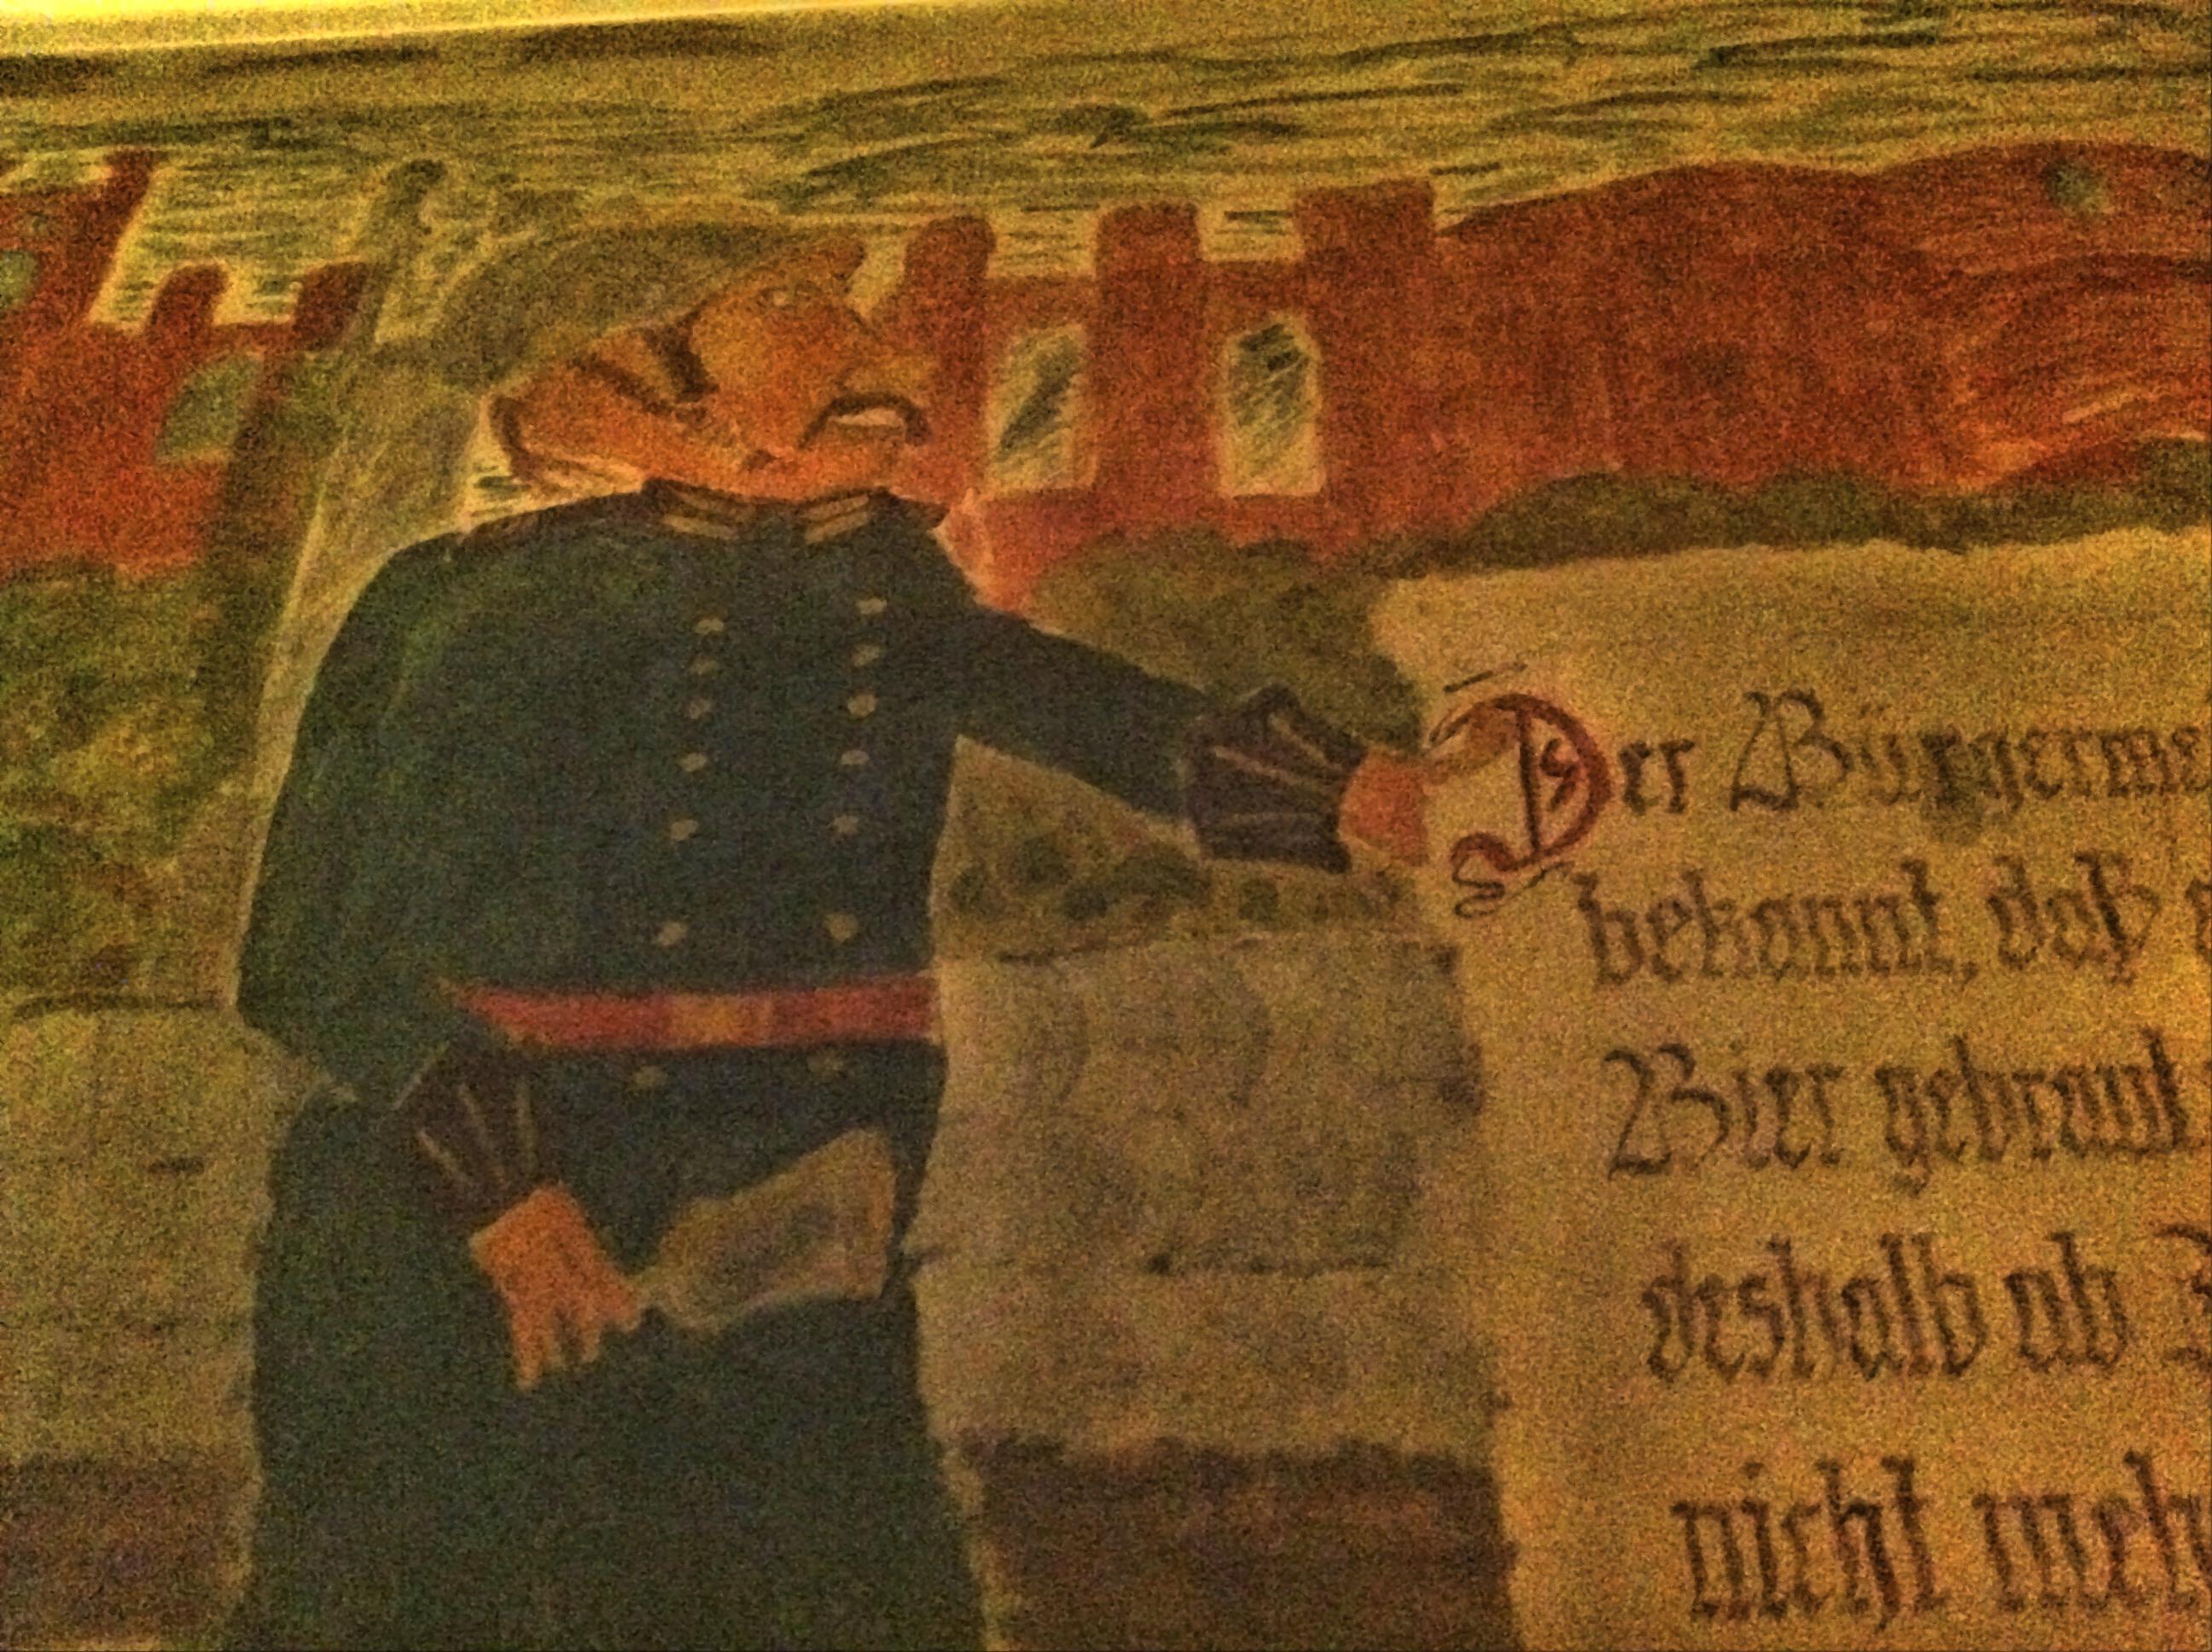 Der Bürgerme
bekannt, daß
Bier gebraut
deshalb ab
nicht meh